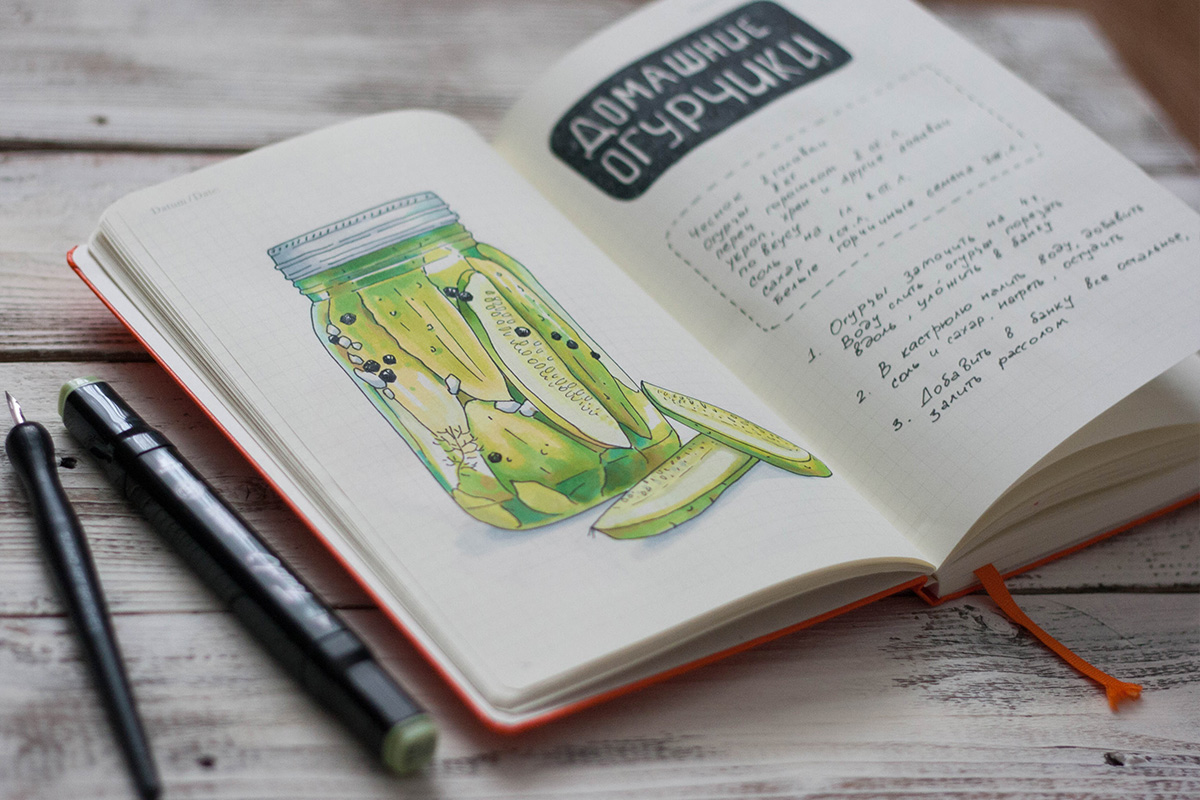 Datum/Date
ДОМАШНИЕ
ОГУРЧИКИ
Чеснок 2 головки
Огурцы 2 кг
перец горошком 2 ст. л.
укроп, хрен и другие добавки
по вкусу
соль на 1 л
сахар 1 ст. л.
белые горчичные семена л
Огурцы замочить на 4 ч.
1. Воду слить, огурцы порезать
вдоль, уложить в банку
2. В кастрюлю налить воду, добавить
соль и сахар. нагреть, остудить
3. Добавить в банку все остальное,
залить рассолом